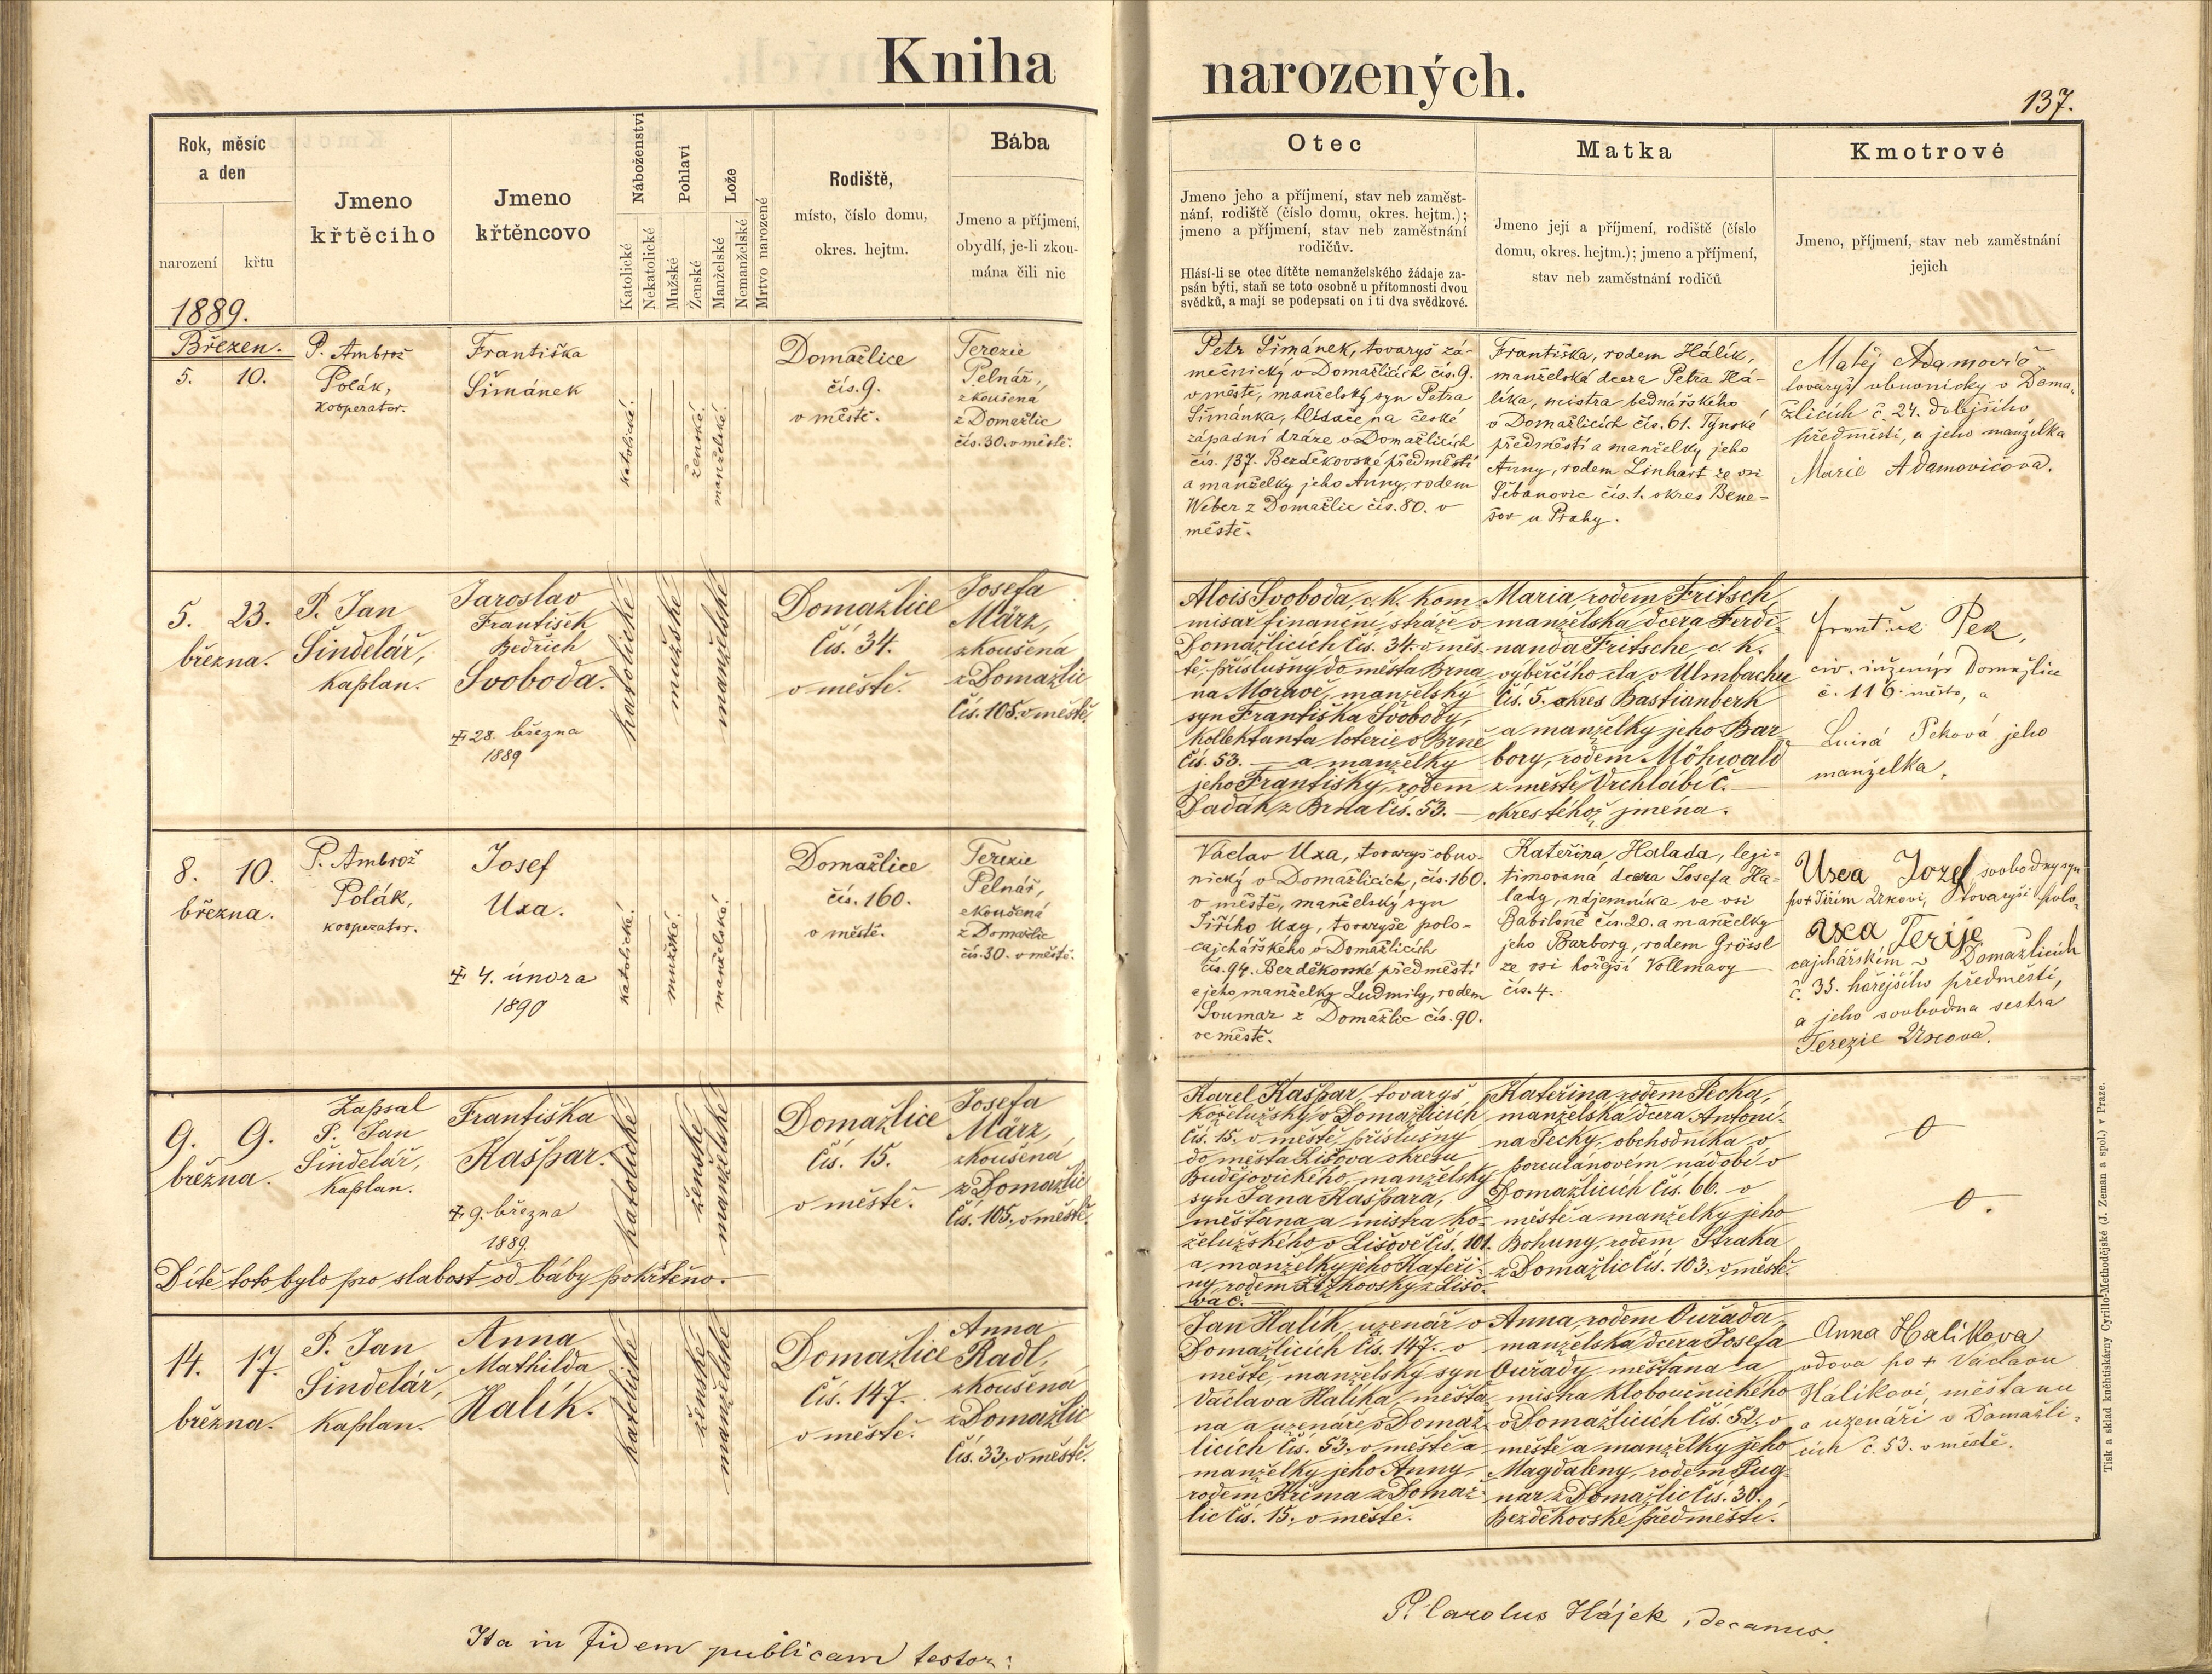 Kniha narozených.
137.
Rok, měsíc
a den
narození
křtu
Jmeno
křtěciho
Jmeno
křtěncovo
Náboženství
Katolické
Nekatolické
Pohlaví
Mužské
Ženské
Lože
Manželské
Nemanželské
Mrtvo narozené
Rodiště,
místo, číslo domu,
okres. hejtm.
Bába
Jmeno a příjmení,
obydlí, je-li zkou-
mána čili nic
Otec
Jmeno jeho a příjmení, stav neb zaměst-
nání, rodiště (číslo domu, okres. hejtm.);
jmeno a příjmení, stav neb zaměstnání
rodičův.
Hlásí-li se otec dítěte nemanželského žádaje za-
psán býti, staň se toto osobně u přítomnosti dvou
svědků, a mají se podepsati on i ti dva svědkové.
Matka
Jmeno její a příjmení, rodiště (číslo
domu, okres. hejtm.); jmeno a příjmení,
stav neb zaměstnání rodičů
Kmotrové
Jmeno, příjmení, stav neb zaměstnání
jejich
1889.
Březen.
5. 10.
P. Ambrož
Polák,
kooperator.
Františka
Šimánek
katolická.
ženská.
manželská.
Domažlice
čís. 9.
v městě.
Terezie
Pelnář,
zkoušena
z Domažlic
čís. 30. v městě.
Petr Šimánek, tovaryš zá-
mečnický v Domažlicích čís. 9.
v městě, manželský syn Petra
Šimánka, hlídače na české
západní dráze v Domažlicích
čís. 137. Bezděkovské předměstí
a manželky jeho Anny, rodem
Weber z Domažlic čís. 80. v
městě.
Františka, rodem Hálík,
manželská dcera Petra Há-
líka, mistra bednářského
v Domažlicích čís. 61. Týnské
předměstí a manželky jeho
Anny, rodem Linhart ze vsi
Šebanovic čís. 1. okres Bene-
šov u Prahy.
Matěj Adamovič
tovaryš obuvnický v Doma-
žlicích č. 24. dolejšího
předměstí, a jeho manželka
Marie Adamovičova.
5. 23.
března.
P. Jan
Šindelář,
kaplan.
Jaroslav
František
Bedřich
Svoboda.
28. března
1889
katolické
mužské
manželské
Domažlice
Čís. 34.
v městě.
Josefa
März,
zkoušená
z Domažlic
Čís. 105. v městě.
Alois Svoboda, c. k. kom-
misař finanční stráže v
Domažlicích Čís. 34. v měs-
tě, příslušný do města Brna
na Moravě, manželský
syn Františka Svobody,
kollektanta loterie v Brně
Čís. 53. a manželky
jeho Františky, rodem
Ladák z Brna Čís. 53.
Maria, rodem Fritsch
manželská dcera Ferdi-
nanda Fritsche, c. k.
výběrčího cla v Ulmbachu
Čís. 5. okres Bastianberk
a manželky jeho Bar-
bory, rodem Möhwald
z městě Vrchlabí č.
okres téhož jména.
František Pek,
civ. inženýr Domažlice
č. 116. město, a
Luisá Peková jeho
manželka.
8. 10.
března.
P. Ambrož
Polák,
kooperator.
Josef
Uxa.
4. února
1890
katolická.
mužská.
manželská.
Domažlice
čís. 160.
v městě.
Terezie
Pelnář,
zkoušená
z Domažlic
čís. 30. v městě.
Václav Uxa, tovaryš obuv-
nický v Domažlicích, čís. 160.
v městě, manželský syn
Jiřího Uxy, tovaryše polo-
cajchářského v Domažlicích
čís. 94. Bezděkovské předměstí
a jeho manželky Ludmily, rodem
Soumar z Domažlic čís. 90.
ve městě.
Kateřina, Halada, legi-
timovaná dcera Josefa Ha-
lady, nájemníka ve vsi
Babiloně čís. 20. a manželky
jeho Barbory, rodem Grössl
ze vsi hořejší Vollmavy
čís. 4.
Uxa Jozef svobodny syn
po + Jiřím Uxovi, tovaryši polo-
Uxa Terije
cajchářském v Domažlicích
č. 35. hořejšího předměstí,
a jeho svobodna sestra
Terezie Uxova.
9. 9.
března.
Zapsal
P. Jan
Šindelář,
kaplan.
Františka
Kašpar.
9. března
1889.
katolické
ženské
manželské
Domažlice
Čís. 15.
v městě.
Josefa
März,
zkoušená
z Domažlic
Čís. 105. v městě.
Dítě toto bylo pro slabost od báby pokřtěno.
Karel Kašpar, tovaryš
koželužský v Domažlicích
Čís. 15. v městě, příslušný
do města Lišova okresu
Budějovického, manželský
syn Jana Kašpara,
měšťana a mistra ko-
želužského v Lišově Čís. 101.
a manželky jeho Kateři-
ny, rodem Žižkovský z Lišo-
va č.
Kateřina, rodem Pecka,
manželská dcera Antoní-
na Pecky, obchodníka v
porculánovém nádobí v
Domažlicích Čís. 66. v
městě a manželky jeho
Bohuny, rodem Straka
z Domažlic Čís. 103. v městě.
0
0.
14. 17.
března.
P. Jan
Šindelář,
kaplan.
Anna
Mathilda
Halík.
katolické
ženské
manželské
Domažlice
Čís. 147.
v městě.
Anna
Radl,
zkoušená
z Domažlic
Čís. 33. v městě.
Jan Halík, uzenář v
Domažlicích Čís. 147. v
městě, manželský syn
Václava Halíka, měšťa-
na a uzenáře v Domaž-
licích Čís. 53. v městě a
manželky jeho Anny,
rodem Krčma z Domaž-
lic Čís. 15. v městě.
Anna, rodem Ouřada,
manželská dcera Josefa
Ouřady, měšťana a
mistra kloboučnického
v Domažlicích Čís. 52. v
městě a manželky jeho
Magdaleny, rodem Pug-
nar z Domažlic Čís. 30.
Bezděkovské předměstí.
Anna Halikova
vdova po + Václavu
Halíkovi, měštanu
a uzenáři v Domažli-
cích č. 53. v městě.
Ita in fidem publicam testor:
P. Carolus Hájek, decanus.
Tisk a sklad kněhtiskárny Cyrillo-Methodějské (J. Zeman a spol.) v Praze.